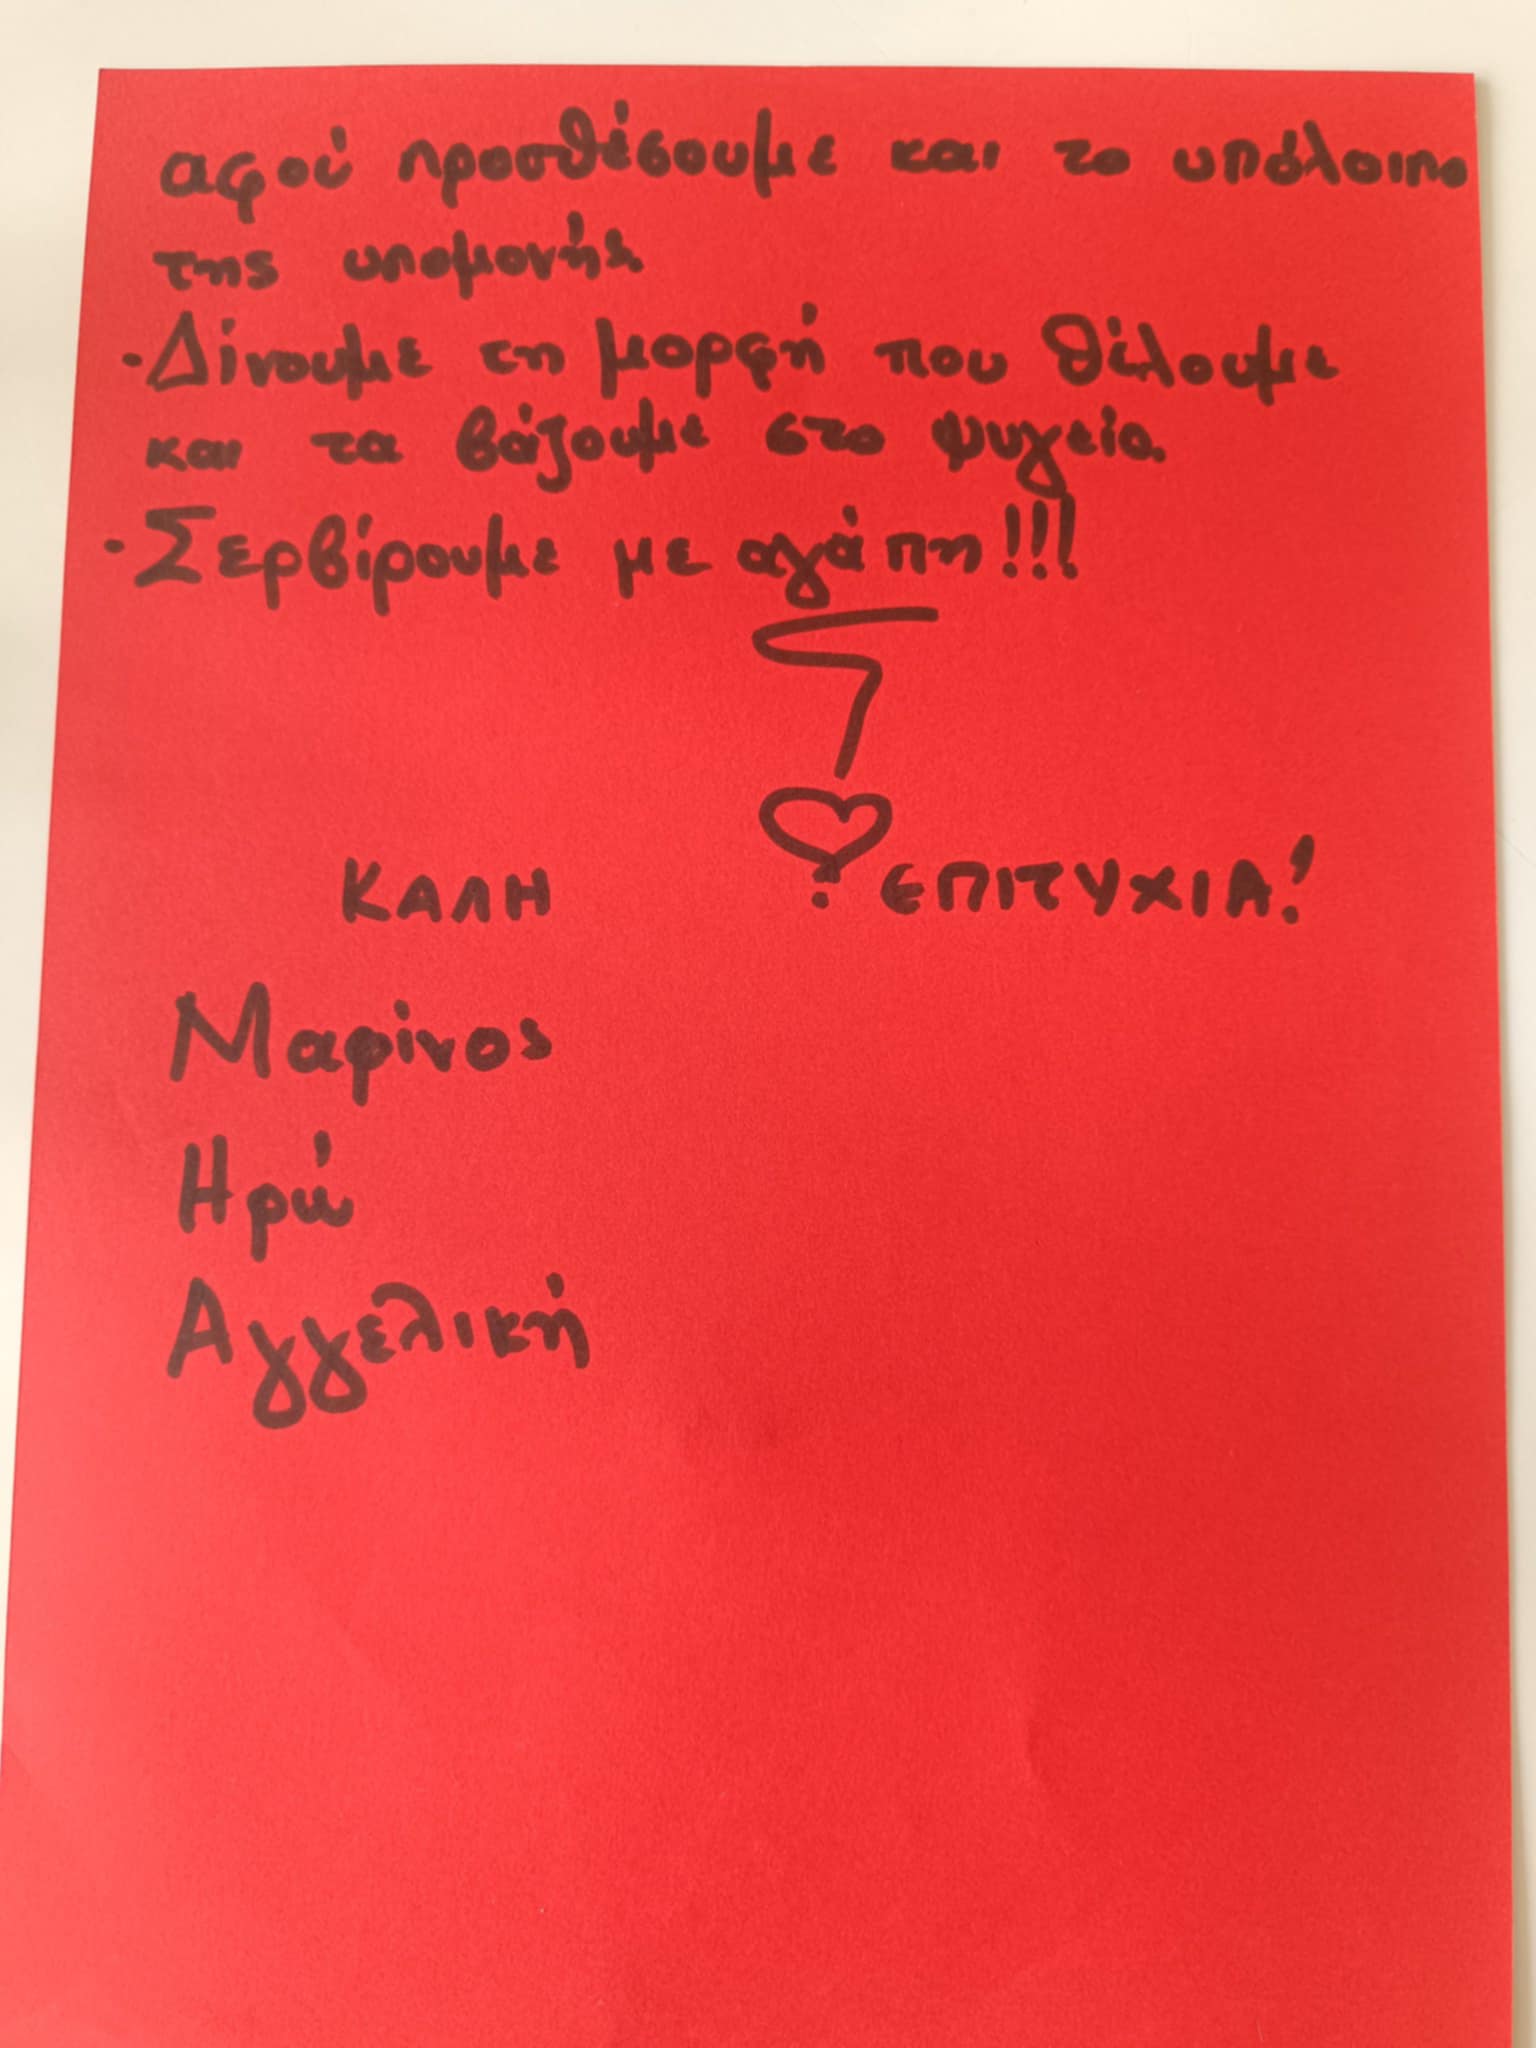 αφού προσθέσουμε και το υπόλοιπο
της υπομονής.
·Δίνουμε τη μορφή που θέλουμε
και τα βάζουμε στο ψυγείο.
·Σερβίρουμε με αγάπη!!!
ΚΑΛΗ ΕΠΙΤΥΧΙΑ!
Μαρίνος
Ηρώ
Αγγελική